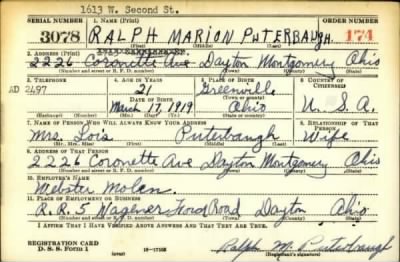 1613 W. Second St.
SERIAL NUMBER 1. NAME (Print) ORDER NUMBER
3078 RALPH MARION PUTERBAUGH 174
(First) (Middle) (Last)
2. ADDRESS (Print)
2226 Coronette Ave Dayton Montgomery Ohio
(Number and street or R. F. D. number) (Town) (County) (State)
3. TELEPHONE 4. AGE IN YEARS 5. PLACE OF BIRTH 6. COUNTRY OF CITIZENSHIP
AD 2497 21 Greenville
DATE OF BIRTH (Town or county)
March 17, 1919 Ohio U. S. A.
(Mo.) (Day) (Yr.) (State or country)
7. NAME OF PERSON WHO WILL ALWAYS KNOW YOUR ADDRESS 8. RELATIONSHIP OF THAT PERSON
Mrs. Lois Puterbaugh Wife
(Mr., Mrs., Miss) (First) (Middle) (Last)
9. ADDRESS OF THAT PERSON
2226 Coronette Ave Dayton Montgomery Ohio
(Number and street or R. F. D. number) (Town) (County) (State)
10. EMPLOYER'S NAME
Webster Molen
11. PLACE OF EMPLOYMENT OR BUSINESS
R.R. 5 Wagener Ford Road Dayton Ohio
(Number and street or R. F. D. number) (Town) (County) (State)
I AFFIRM THAT I HAVE VERIFIED ABOVE ANSWERS AND THAT THEY ARE TRUE.
REGISTRATION CARD
D. S. S. Form 1 (over) Ralph M. Puterbaugh
(Registrant's signature)